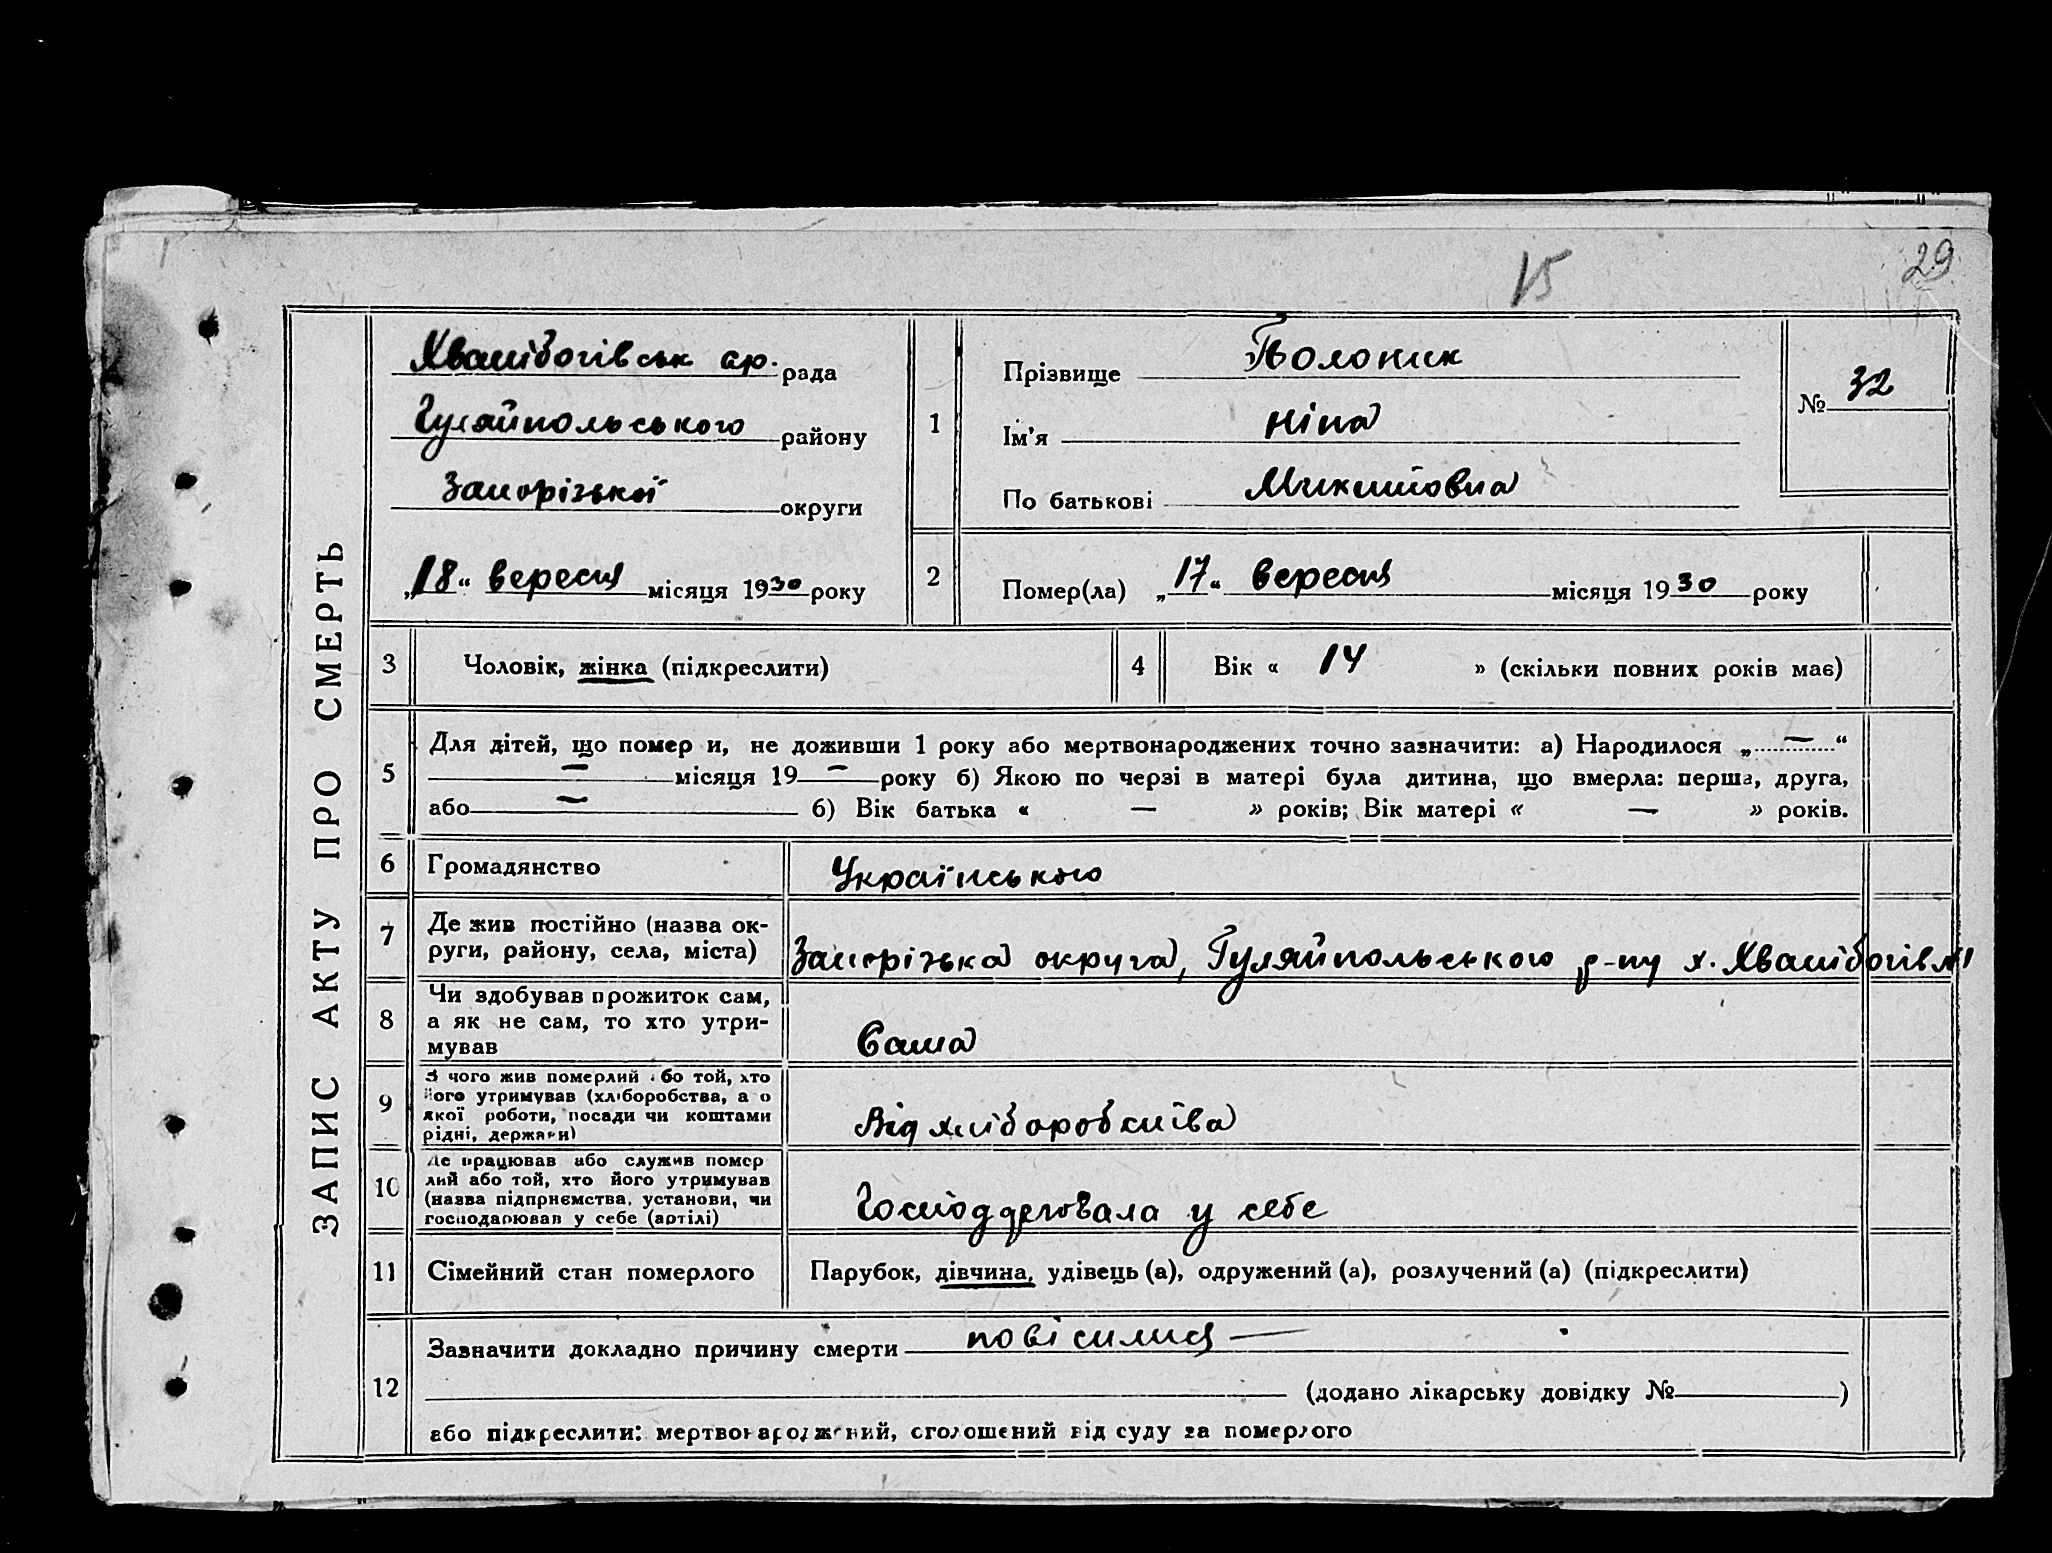 15
29
ЗАПИС АКТУ ПРО СМЕРТЬ
Хвалібогівськ ср. рада
Гуляйпольського району
Запорізької округи
„18“ вересня місяця 1930 року
1
Прізвище Волоник
Ім'я Ніна
По батькові Микитовна
№ 32
2
Помер(ла) „17“ вересня місяця 1930 року
3
Чоловік, жінка (підкреслити)
4
Вік « 14 » (скільки повних років має)
5
Для дітей, що помер и, не доживши 1 року або мертвонароджених точно зазначити: а) Народилося „ — “
— місяця 19 — року б) Якою по черзі в матері була дитина, що вмерла: перша, друга,
або — б) Вік батька « — » років; Вік матері « — » років.
6
Громадянство
Українського
7
Де жив постійно (назва ок-
руги, району, села, міста)
Запорізька округа, Гуляйпольського р-ну х. Хвалібогівка
8
Чи здобував прожиток сам,
а як не сам, то хто утри-
мував
Сама
9
З чого жив померлий або той, хто
його утримував (хліборобства, а о
якої роботи, посади чи коштами
рідні, держави)
Від хліборобства
10
Де працював або служив помер
лий або той, хто його утримував
(назва підприємства, установи, чи
господарював у себе (артілі)
Господдрювала у себе
11
Сімейний стан померлого
Парубок, дівчина, удівець (а), одружений (а), розлучений (а) (підкреслити)
12
Зазначити докладно причину смерти повісилися —
(додано лікарську довідку № )
або підкреслити: мертвонароджений, оголошений від суду за померлого